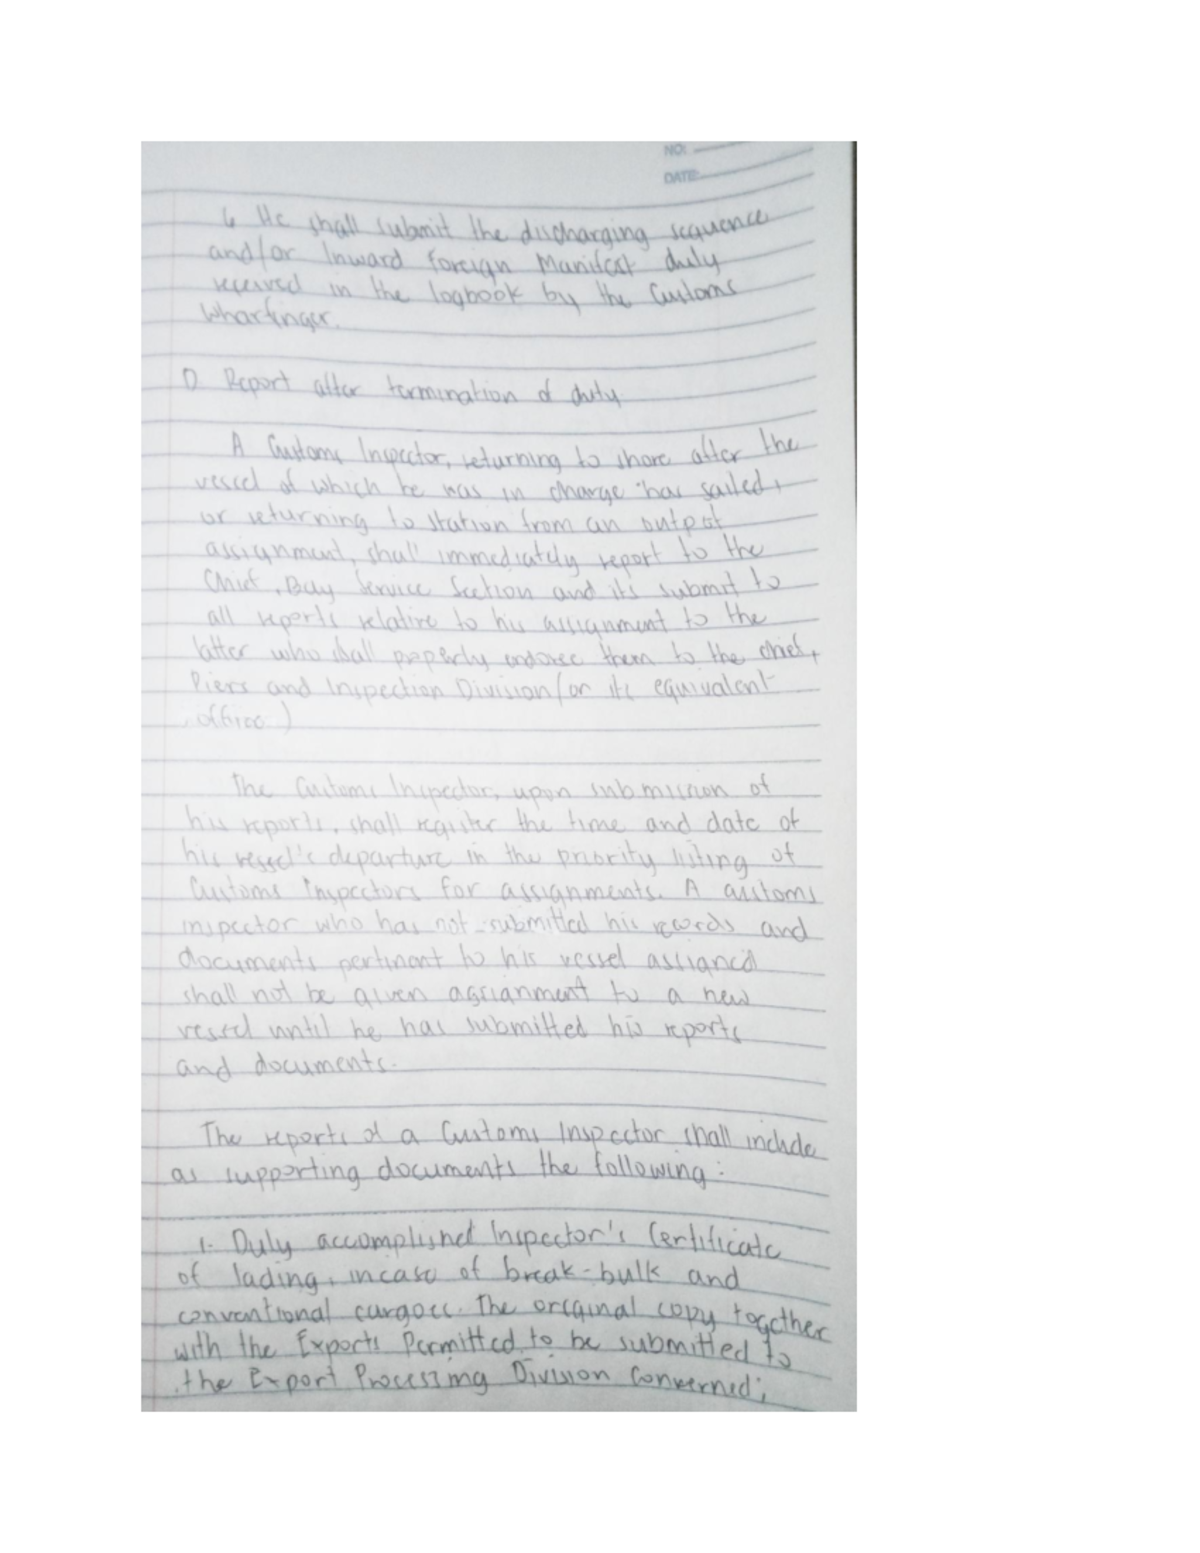 NO:
DATE:
6 He shall submit the discharging sequence
and/or Inward foreign Manifest duly
received in the logbook by the Customs
Wharfinger.
D. Report after termination of duty
A Customs Inspector, returning to shore after the
vessel of which he was in charge has sailed,
or returning to station from an output
assignment, shall immediately report to the
Chief, Bay Service Section and its submit to
all reports relative to his assignment to the
latter who shall properly endorse them to the chief,
Piers and Inspection Division (or its equivalent
office)
The Customs Inspector, upon submission of
his reports, shall register the time and date of
his vessel's departure in the priority listing of
Customs Inspectors for assignments. A customs
inspector who has not submitted his records and
documents pertinent to his vessel assigned
shall not be given assignment to a new
vessel until he has submitted his reports
and documents.
The reports of a Customs Inspector shall include
as supporting documents the following:
1. Duly accomplished Inspector's Certificate
of lading, incase of break-bulk and
conventional cargoes. The original copy together
with the Exports Permitted to be submitted to
the Export Processing Division Concerned;